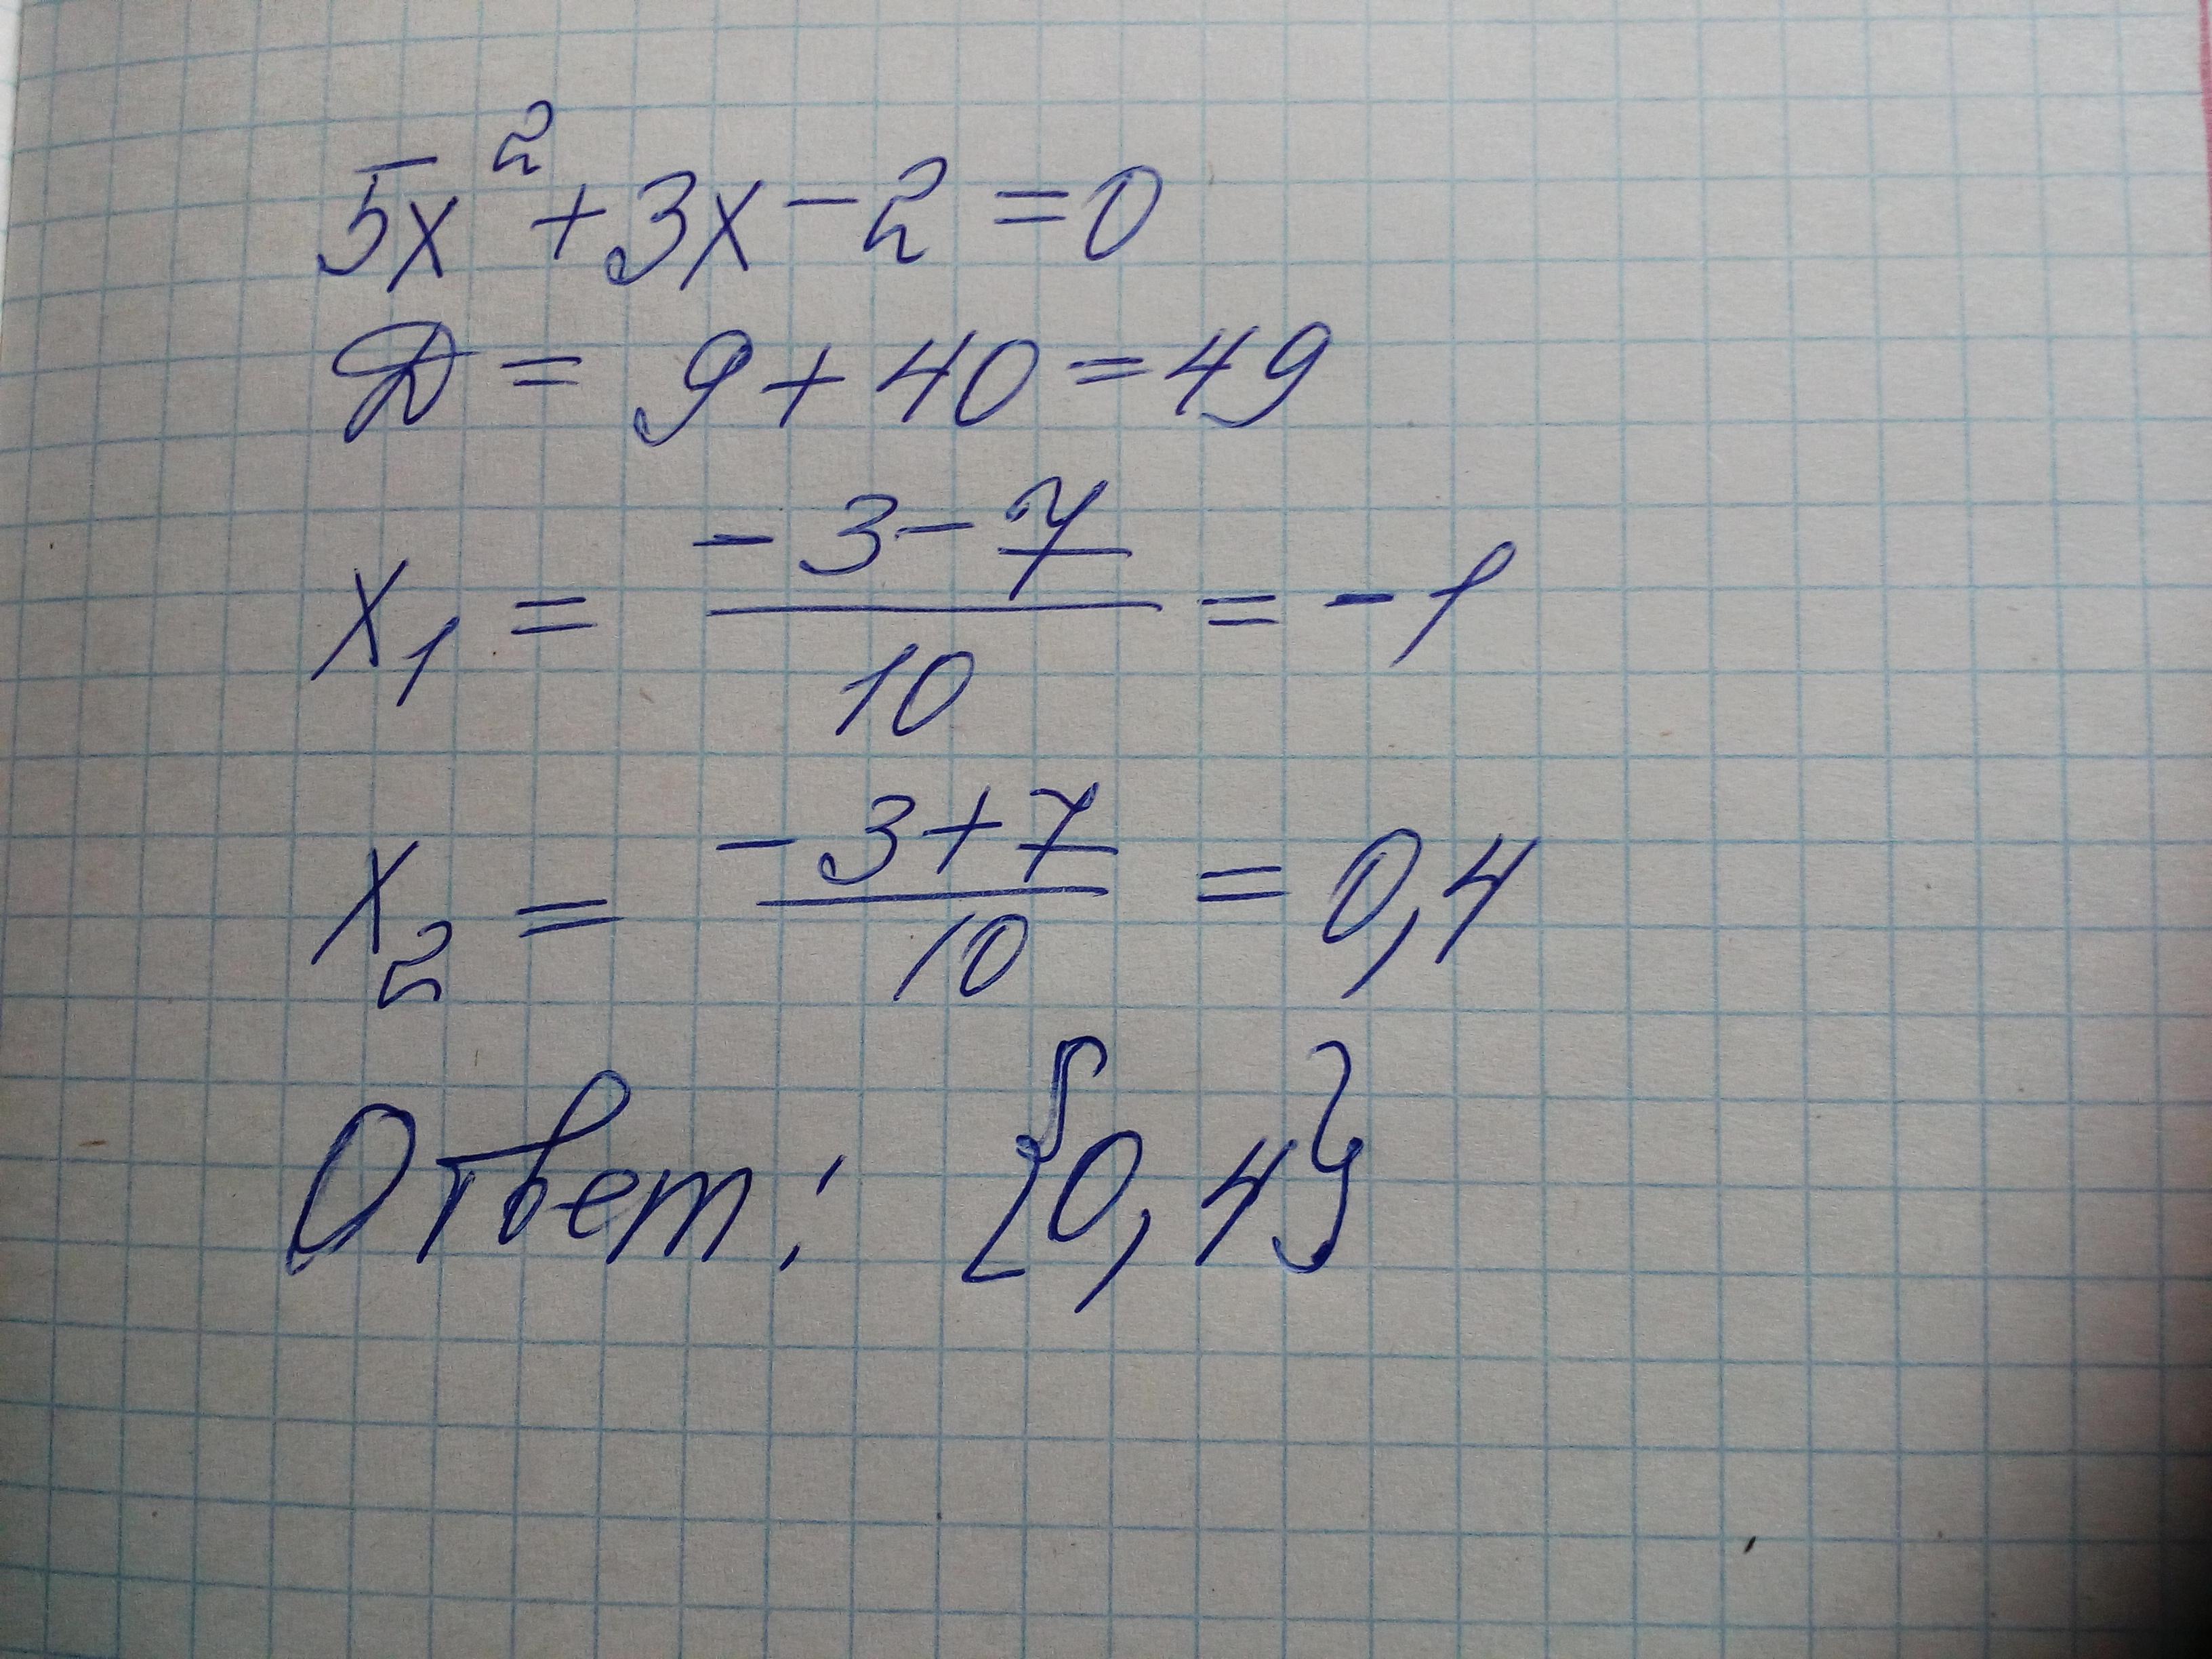 5x² + 3x - 2 = 0
D = 9 + 40 = 49
x₁ = (-3-7)/10 = -1
x₂ = (-3+7)/10 = 0,4
Ответ: {0,4}